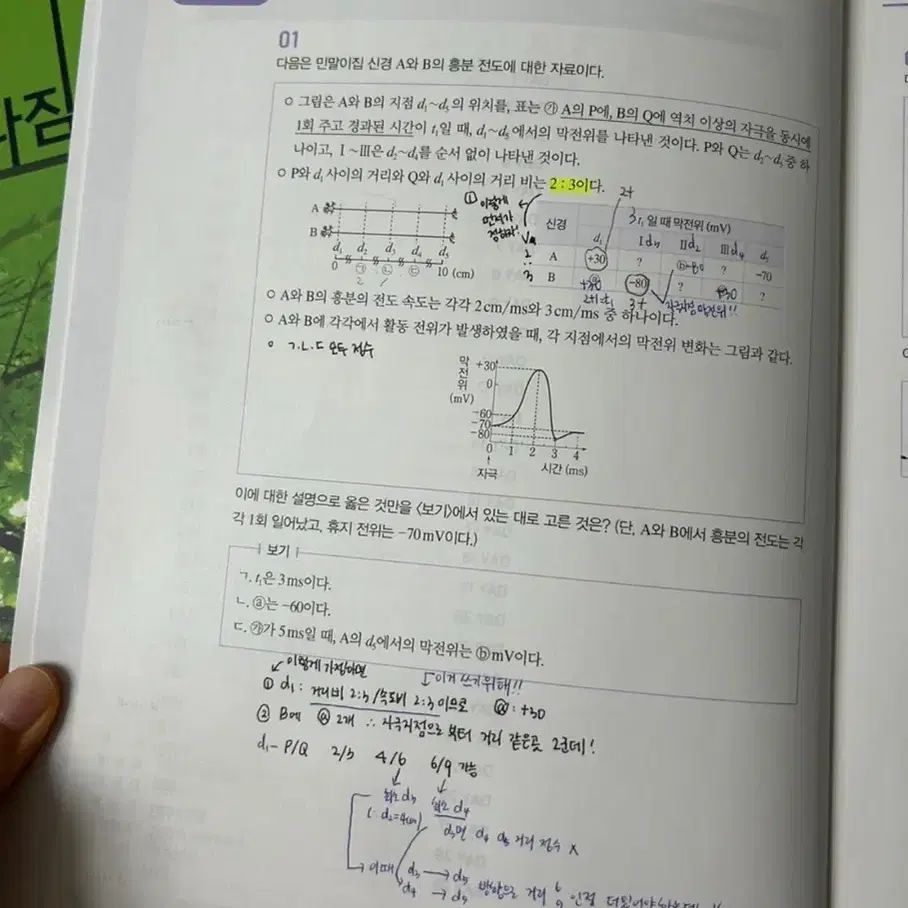 01
다음은 민말이집 신경 A와 B의 흥분 전도에 대한 자료이다.
○ 그림은 A와 B의 지점 d₁~d₅의 위치를, 표는 ㉮ A의 P에, B의 Q에 역치 이상의 자극을 동시에
1회 주고 경과된 시간이 t₁일 때, d₁~d₅에서의 막전위를 나타낸 것이다. P와 Q는 d₂~d₅ 중 하
나이고, Ⅰ~Ⅲ은 d₂~d₄를 순서 없이 나타낸 것이다.
○ P와 d₁ 사이의 거리와 Q와 d₁ 사이의 거리 비는 2 : 3이다.
① 이렇게
2t
신경
3 t₁일 때 막전위(mV)
d₁ Ⅰ Ⅱd₂ Ⅲd₄ d₅
2 A +30 ? ⓑ-80 ? -70
3 B ⓐ -80 ? +30 ?
+30
3t
A
B
d₁ d₂ d₃ d₄ d₅
0 ㉠ ㉡ ㉢ 10 (cm)
○ A와 B의 흥분의 전도 속도는 각각 2 cm/ms와 3 cm/ms 중 하나이다.
○ A와 B에 각각에서 활동 전위가 발생하였을 때, 각 지점에서의 막전위 변화는 그림과 같다.
○ ㄱ.ㄴ.ㄷ 모두 정수
막전위(mV)
+30
0
-60
-70
-80
0 1 2 3 4
자극
시간(ms)
이에 대한 설명으로 옳은 것만을 <보기>에서 있는 대로 고른 것은? (단, A와 B에서 흥분의 전도는 각
각 1회 일어났고, 휴지 전위는 -70 mV이다.)
보기
ㄱ. t₁은 3 ms이다.
ㄴ. ⓐ는 -60이다.
ㄷ. ㉮가 5 ms일 때, A의 d₅에서의 막전위는 ⓑ mV이다.
이렇게 가정하면
이거 쓰기위해!!
① d₁ : 거리비 2:3 / 속도비 2:3 이므로 ⓐ : +30
② B에 ⓐ 2개 ∴ 자극지점으로 부터 거리 같은곳 2군데!
d₁ - P/Q 2/3 4/6 6/9 가능
최소 d₃ 최소 d₄
(∵ d₂=4cm)
d₃면 d₄ d₅ 거리 정수 x
이때 d₃ → d₅
d₄ → d₅